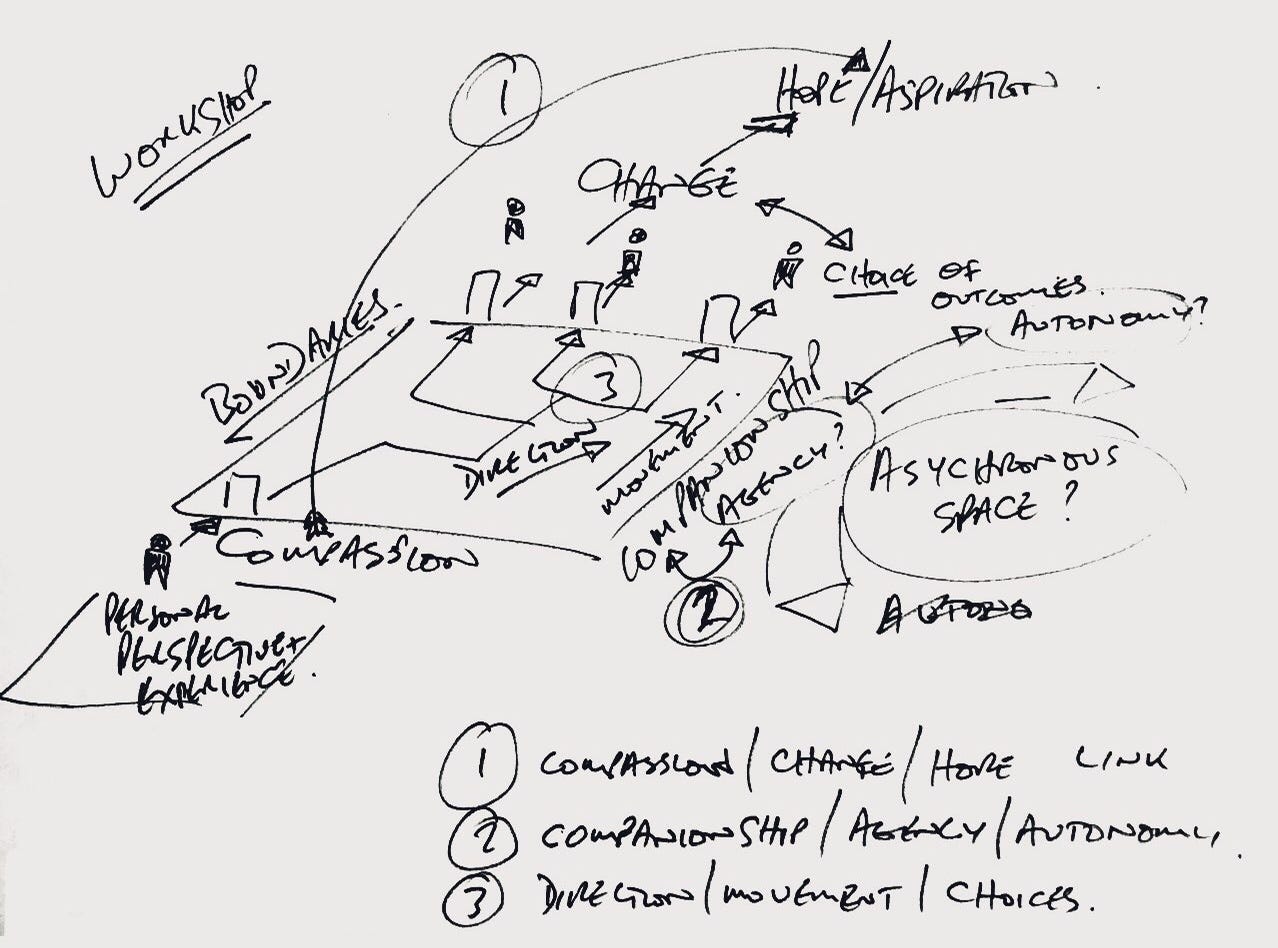 WORKSHOP
1
HOPE/ASPIRATION.
CHANGE
CHOICE OF
OUTCOMES.
AUTONOMY?
BOUNDARIES.
3
DIRECTION
MOVEMENT.
COMPANIONSHIP
AGENCY?
ASYCHRONOUS
SPACE?
COMPASSION
2
PERSONAL
PERSPECTIVE +
EXPERIENCE.
1 COMPASSION/CHANGE/HOPE LINK
2 COMPANIONSHIP/AGENCY/AUTONOMY.
3 DIRECTION/MOVEMENT/CHOICES.